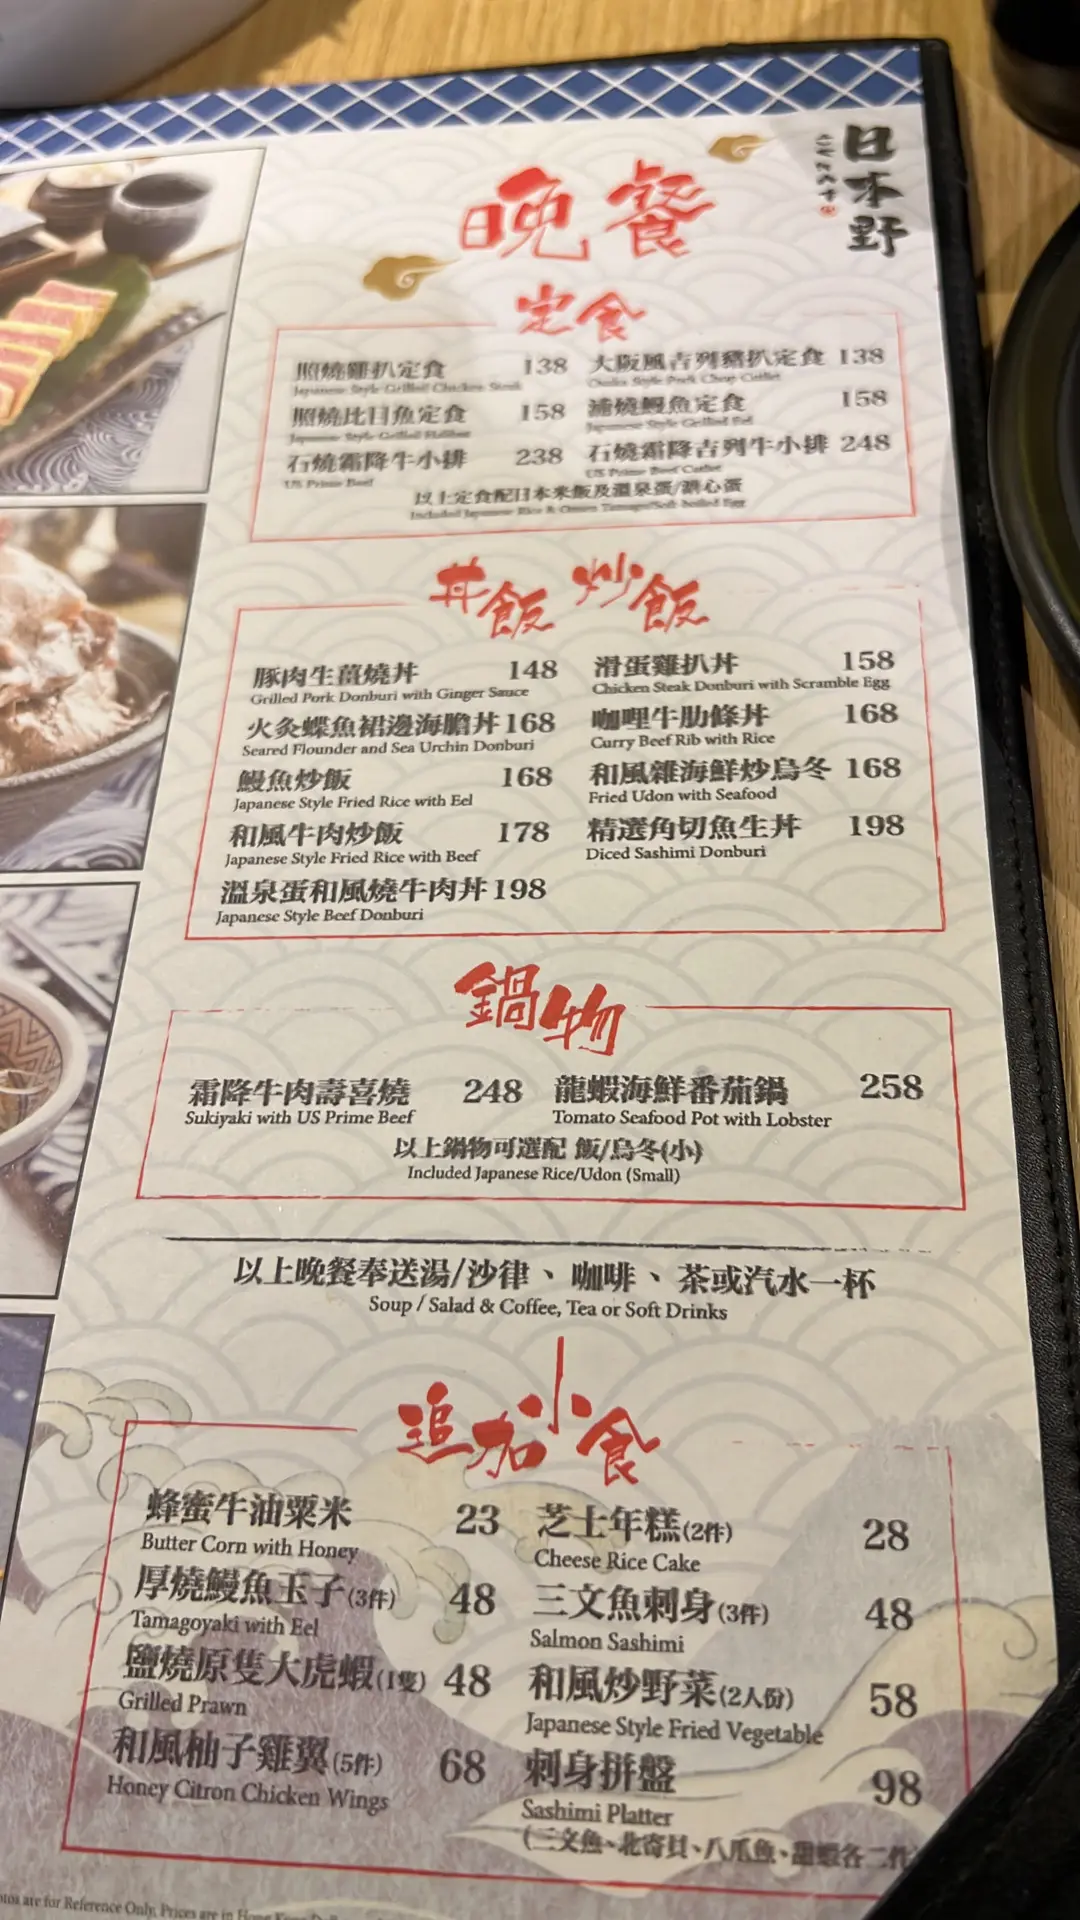 日本野
晚餐
定食
照燒雞扒定食 138
Japanese Style Grilled Chicken Steak
大阪風吉列豬扒定食 138
Osaka Style Pork Chop Cutlet
照燒比目魚定食 158
Japanese Style Grilled Halibut
浦燒鰻魚定食 158
Japanese Style Grilled Eel
石燒霜降牛小排 238
US Prime Beef
石燒霜降吉列牛小排 248
US Prime Beef Cutlet
以上定食配日本米飯及溫泉蛋/糖心蛋
Included Japanese Rice & Onsen Tamago/Soft boiled Egg
丼飯 炒飯
豚肉生薑燒丼 148
Grilled Pork Donburi with Ginger Sauce
滑蛋雞扒丼 158
Chicken Steak Donburi with Scramble Egg
火灸鰈魚裙邊海膽丼 168
Seared Flounder and Sea Urchin Donburi
咖哩牛肋條丼 168
Curry Beef Rib with Rice
鰻魚炒飯 168
Japanese Style Fried Rice with Eel
和風雜海鮮炒烏冬 168
Fried Udon with Seafood
和風牛肉炒飯 178
Japanese Style Fried Rice with Beef
精選角切魚生丼 198
Diced Sashimi Donburi
溫泉蛋和風燒牛肉丼 198
Japanese Style Beef Donburi
鍋物
霜降牛肉壽喜燒 248
Sukiyaki with US Prime Beef
龍蝦海鮮番茄鍋 258
Tomato Seafood Pot with Lobster
以上鍋物可選配 飯/烏冬(小)
Included Japanese Rice/Udon (Small)
以上晚餐奉送湯/沙律、咖啡、茶或汽水一杯
Soup / Salad & Coffee, Tea or Soft Drinks
追加小食
蜂蜜牛油粟米 23
Butter Corn with Honey
芝士年糕(2件) 28
Cheese Rice Cake
厚燒鰻魚玉子(3件) 48
Tamagoyaki with Eel
三文魚刺身(3件) 48
Salmon Sashimi
鹽燒原隻大虎蝦(1隻) 48
Grilled Prawn
和風炒野菜(2人份) 58
Japanese Style Fried Vegetable
和風柚子雞翼(5件) 68
Honey Citron Chicken Wings
刺身拼盤 98
Sashimi Platter
(三文魚、北寄貝、八爪魚、甜蝦各二件)
are for Reference Only, Prices are in Hong Kong